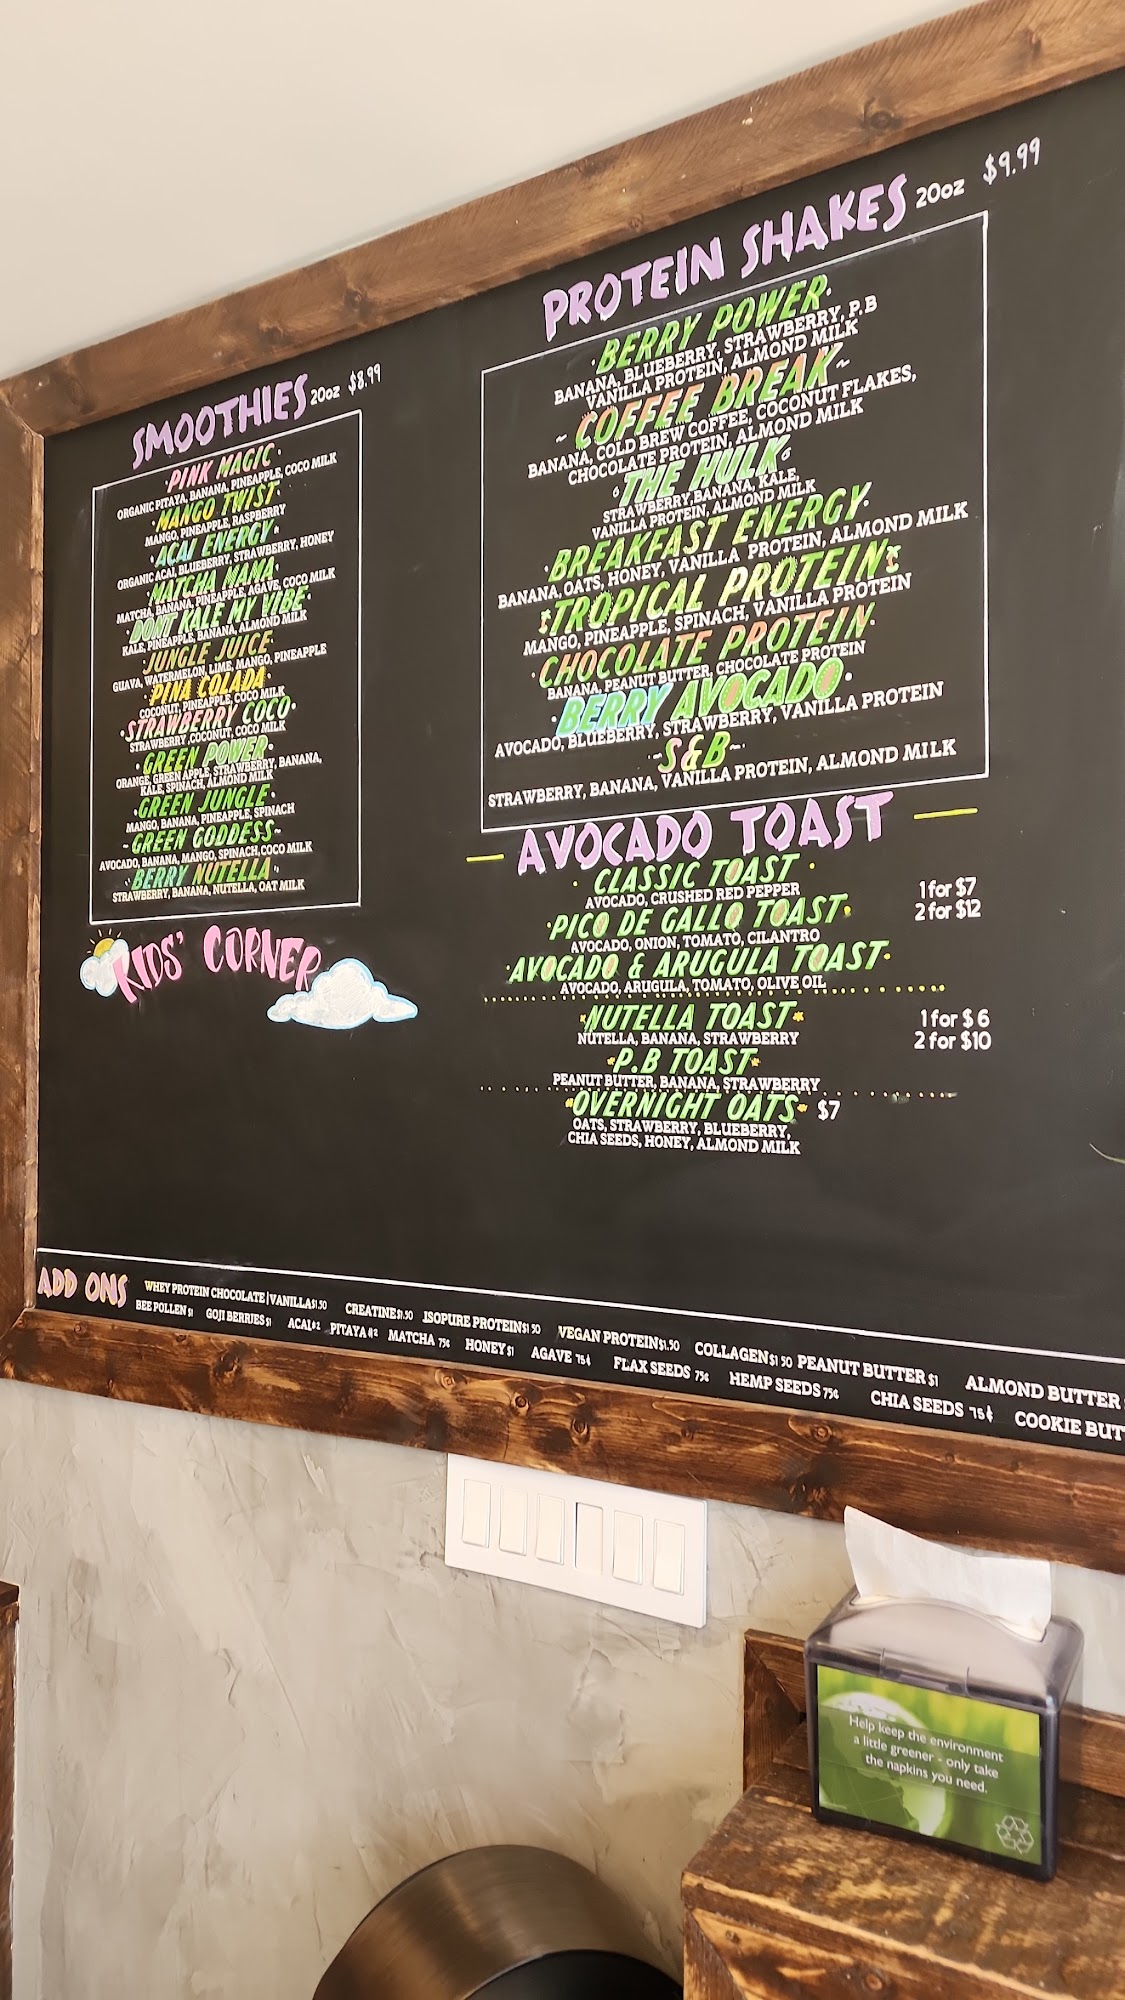 SMOOTHIES 20oz $8.99
PINK MAGIC
ORGANIC PITAYA, BANANA, PINEAPPLE, COCO MILK
MANGO TWIST
MANGO, PINEAPPLE, RASPBERRY
ACAI ENERGY
ORGANIC ACAI, BLUEBERRY, STRAWBERRY, HONEY
MATCHA MANA
MATCHA, BANANA, PINEAPPLE, AGAVE, COCO MILK
DONT KALE MY VIBE
KALE, PINEAPPLE, BANANA, ALMOND MILK
JUNGLE JUICE
GUAVA, WATERMELON, LIME, MANGO, PINEAPPLE
PINA COLADA
COCONUT, PINEAPPLE, COCO MILK
STRAWBERRY COCO
STRAWBERRY, COCONUT, COCO MILK
GREEN POWER
ORANGE, GREEN APPLE, STRAWBERRY, BANANA,
KALE, SPINACH, ALMOND MILK
GREEN JUNGLE
MANGO, BANANA, PINEAPPLE, SPINACH
GREEN GODDESS
AVOCADO, BANANA, MANGO, SPINACH, COCO MILK
BERRY NUTELLA
STRAWBERRY, BANANA, NUTELLA, OAT MILK
KIDS' CORNER
PROTEIN SHAKES 20oz $9.99
BERRY POWER
BANANA, BLUEBERRY, STRAWBERRY, P.B
VANILLA PROTEIN, ALMOND MILK
~ COFFEE BREAK ~
BANANA, COLD BREW COFFEE, COCONUT FLAKES,
CHOCOLATE PROTEIN, ALMOND MILK
THE HULK
STRAWBERRY, BANANA, KALE,
VANILLA PROTEIN, ALMOND MILK
BREAKFAST ENERGY
BANANA, OATS, HONEY, VANILLA PROTEIN, ALMOND MILK
TROPICAL PROTEIN
MANGO, PINEAPPLE, SPINACH, VANILLA PROTEIN
CHOCOLATE PROTEIN
BANANA, PEANUT BUTTER, CHOCOLATE PROTEIN
BERRY AVOCADO
AVOCADO, BLUEBERRY, STRAWBERRY, VANILLA PROTEIN
~S&B~
STRAWBERRY, BANANA, VANILLA PROTEIN, ALMOND MILK
AVOCADO TOAST
CLASSIC TOAST
AVOCADO, CRUSHED RED PEPPER
1 for $7
2 for $12
PICO DE GALLO TOAST
AVOCADO, ONION, TOMATO, CILANTRO
AVOCADO & ARUGULA TOAST
AVOCADO, ARUGULA, TOMATO, OLIVE OIL
NUTELLA TOAST
NUTELLA, BANANA, STRAWBERRY
1 for $6
2 for $10
P.B TOAST
PEANUT BUTTER, BANANA, STRAWBERRY
OVERNIGHT OATS $7
OATS, STRAWBERRY, BLUEBERRY,
CHIA SEEDS, HONEY, ALMOND MILK
ADD ONS
WHEY PROTEIN CHOCOLATE | VANILLA $1.50 CREATINE $1.50 ISOPURE PROTEIN $1.50 VEGAN PROTEIN $1.50 COLLAGEN $1.50 PEANUT BUTTER $1 ALMOND BUTTER
BEE POLLEN $1 GOJI BERRIES $1 ACAI $2 PITAYA $2 MATCHA 75¢ HONEY $1 AGAVE 75¢ FLAX SEEDS 75¢ HEMP SEEDS 75¢ CHIA SEEDS 75¢ COOKIE BUT
Help keep the environment
a little greener - only take
the napkins you need.